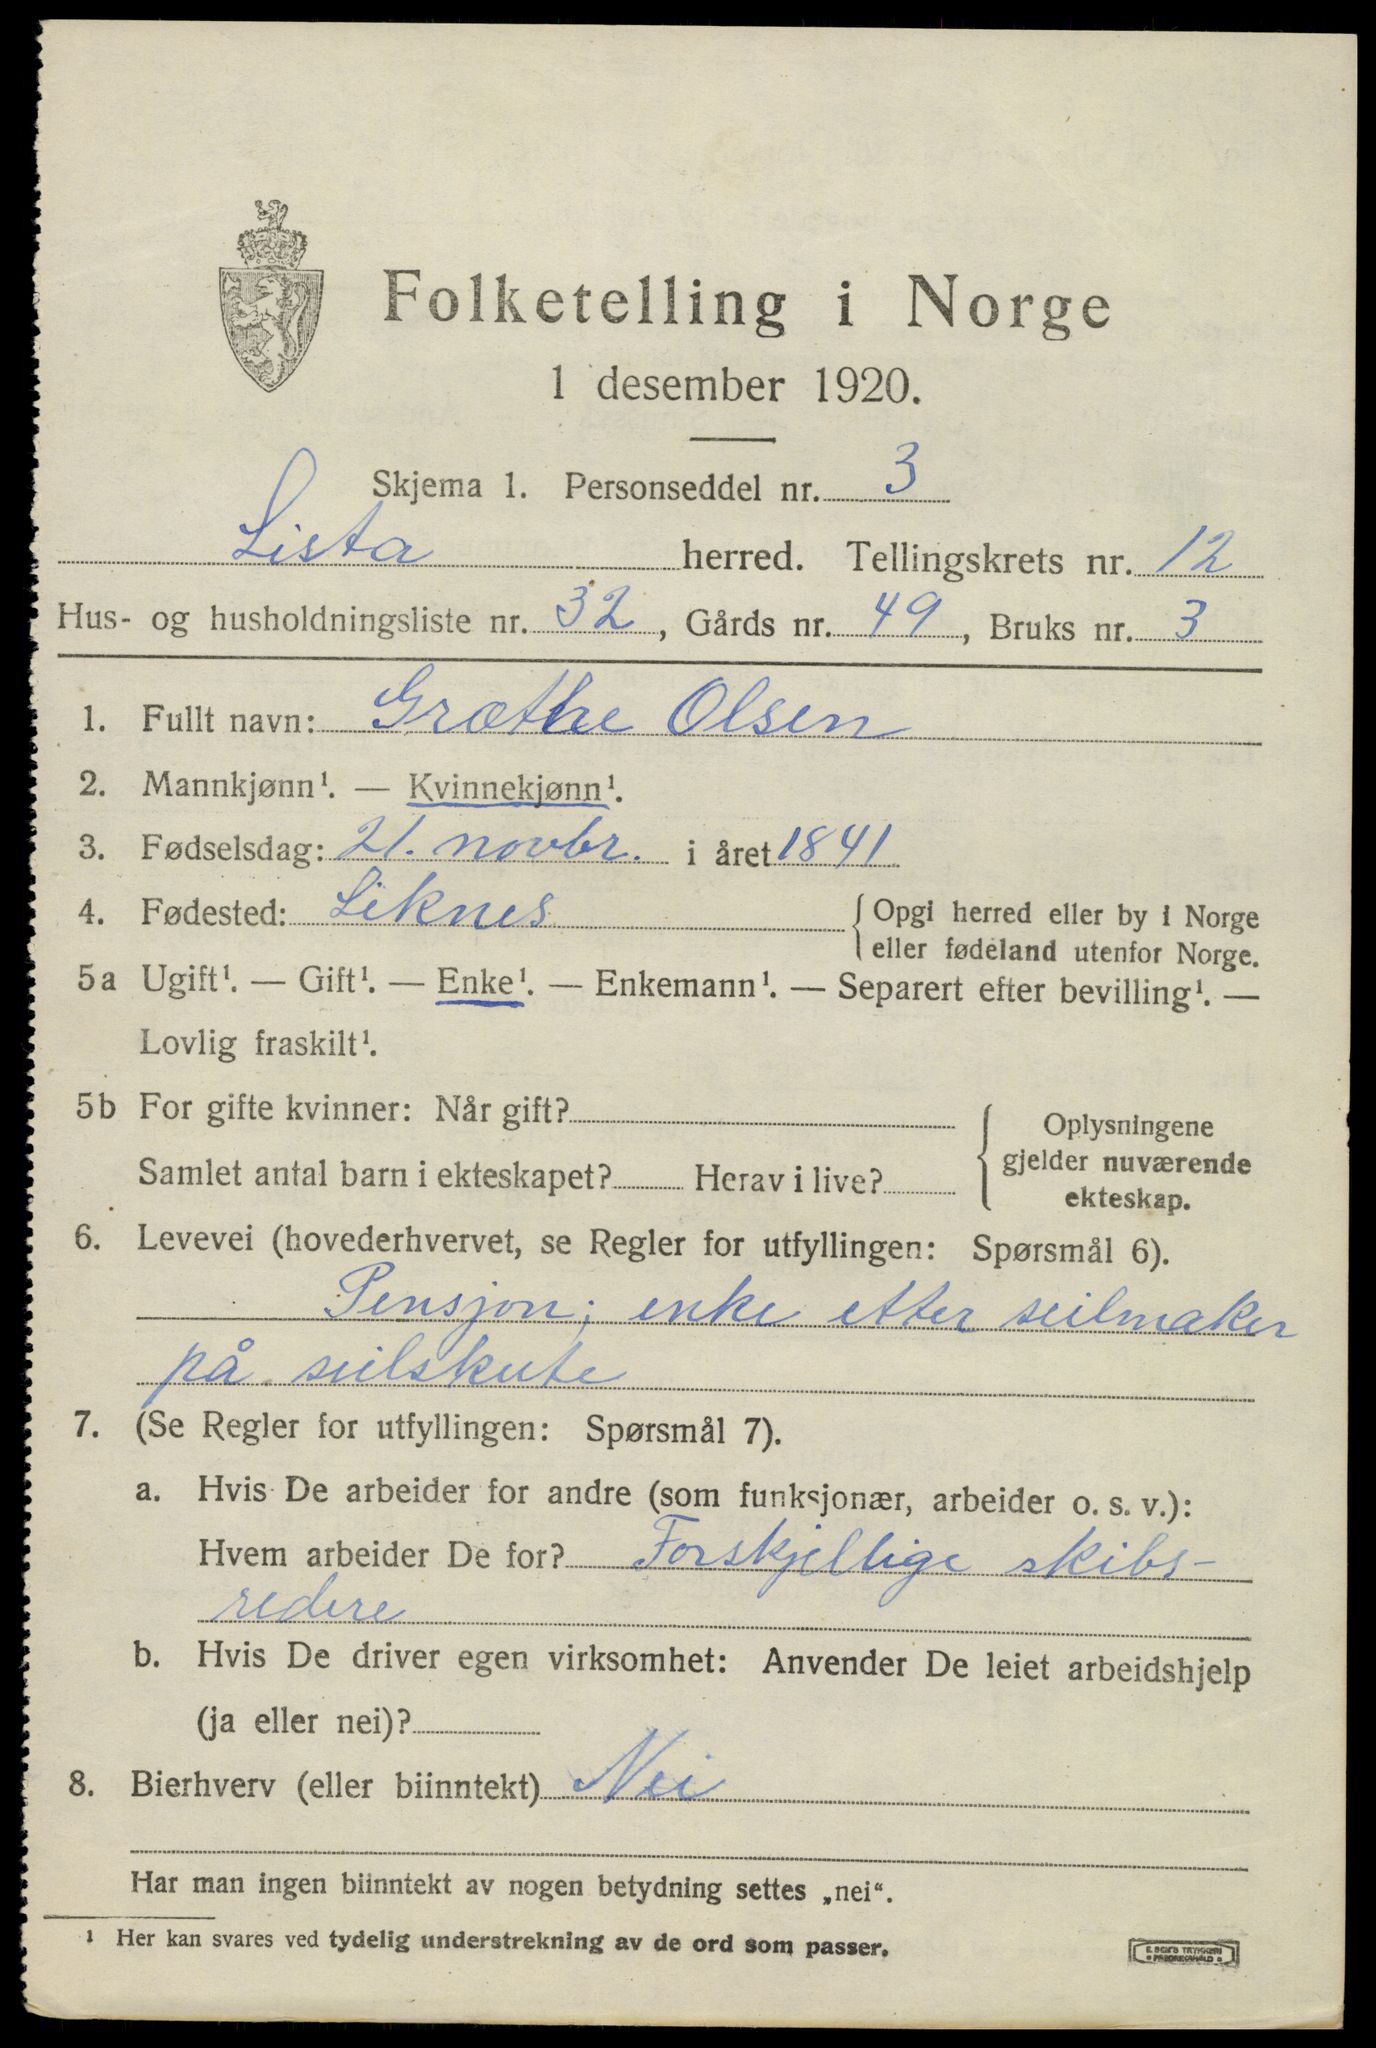 Folketelling i Norge
1 desember 1920.
Skjema 1. Personseddel nr. 3
Lista herred. Tellingskrets nr. 12
Hus- og husholdningsliste nr. 32, Gårds nr. 49, Bruks nr. 3
1. Fullt navn: Græthe Olsen
2. Mannkjønn¹. — Kvinnekjønn¹.
3. Fødselsdag: 21. novbr. i året 1841
4. Fødested: Liknes {Opgi herred eller by i Norge
eller fødeland utenfor Norge.
5a Ugift¹. — Gift¹. — Enke¹. — Enkemann¹. — Separert efter bevilling¹. —
Lovlig fraskilt¹.
5b For gifte kvinner: Når gift?
Samlet antal barn i ekteskapet? Herav i live?
Oplysningene
gjelder nuværende
ekteskap.
6. Levevei (hovederhvervet, se Regler for utfyllingen: Spørsmål 6).
Pensjon; enke etter seilmaker
på seilskute
7. (Se Regler for utfyllingen: Spørsmål 7).
a. Hvis De arbeider for andre (som funksjonær, arbeider o. s. v.):
Hvem arbeider De for? Forskjellige skibs-
redere
b. Hvis De driver egen virksomhet: Anvender De leiet arbeidshjelp
(ja eller nei)?
8. Bierhverv (eller biinntekt) Nei
Har man ingen biinntekt av nogen betydning settes „nei“.
¹ Her kan svares ved tydelig understrekning av de ord som passer.